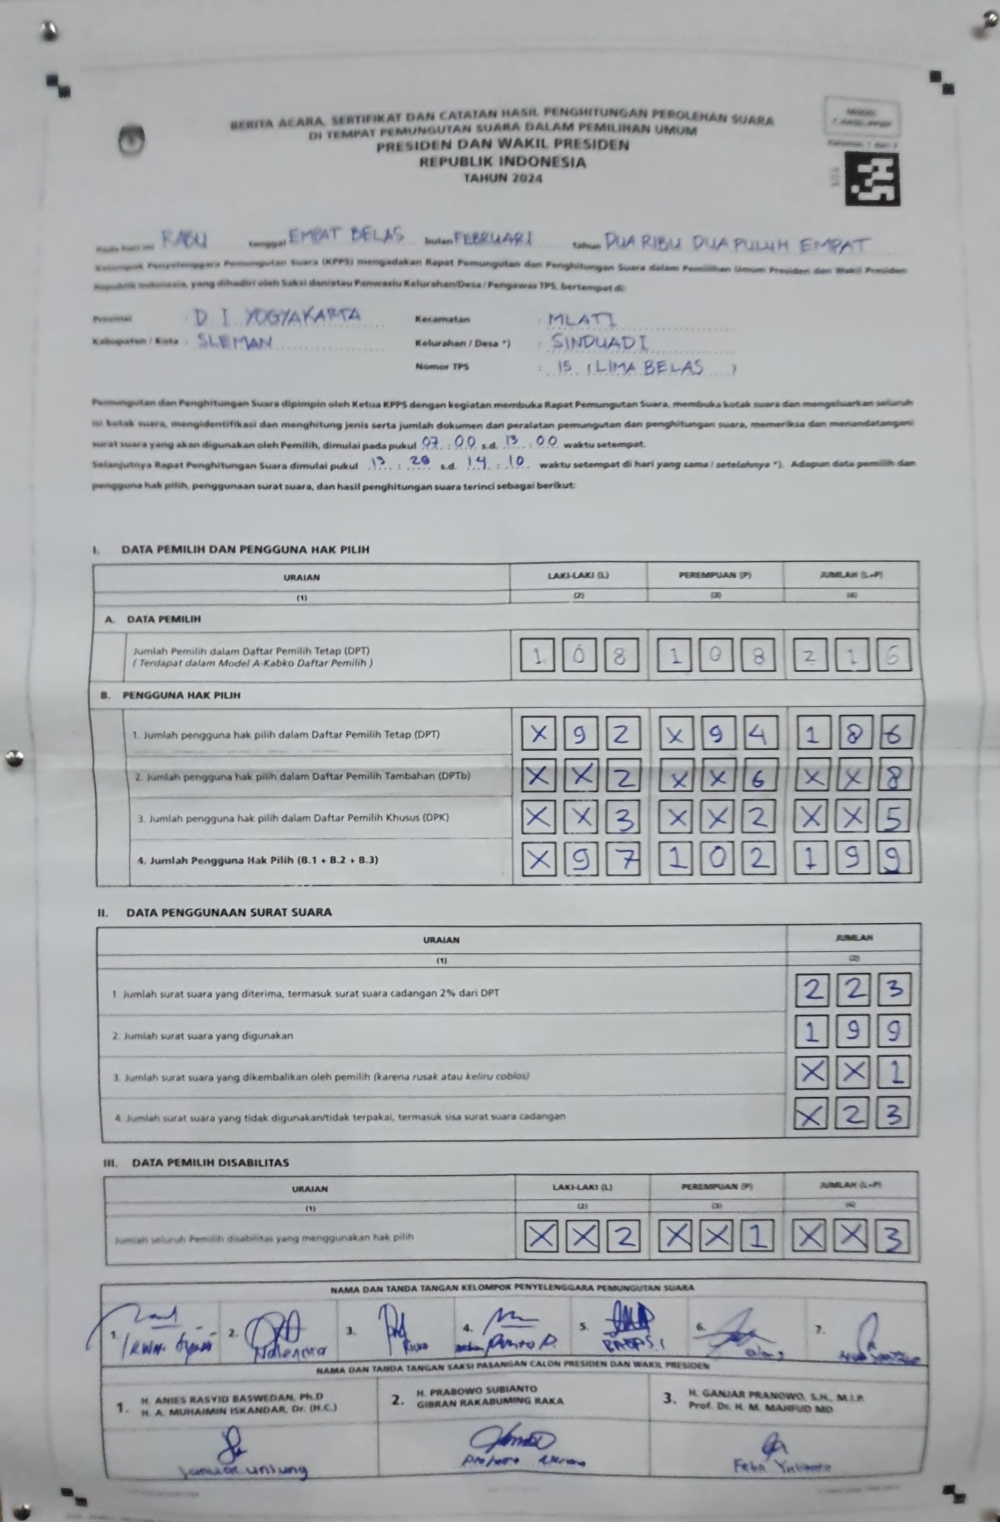 BERITA ACARA, SERTIFIKAT DAN CATATAN HASIL PENGHITUNGAN PEROLEHAN SUARA
DI TEMPAT PEMUNGUTAN SUARA DALAM PEMILIHAN UMUM
PRESIDEN DAN WAKIL PRESIDEN
REPUBLIK INDONESIA
TAHUN 2024
MODEL
C.HASIL-PPWP
Pada hari ini RABU tanggal EMPAT BELAS bulan FEBRUARI tahun DUA RIBU DUA PULUH EMPAT
Kelompok Penyelenggara Pemungutan Suara (KPPS) mengadakan Rapat Pemungutan dan Penghitungan Suara dalam Pemilihan Umum Presiden dan Wakil Presiden
Republik Indonesia, yang dihadiri oleh Saksi dan/atau Panwaslu Kelurahan/Desa/Pengawas TPS, bertempat di:
Provinsi : D. I. YOGYAKARTA Kecamatan : MLATI
Kabupaten / Kota : SLEMAN Kelurahan / Desa *) : SINDUADI
Nomor TPS : 15 (LIMA BELAS)
Pemungutan dan Penghitungan Suara dipimpin oleh Ketua KPPS dengan kegiatan membuka Rapat Pemungutan Suara, membuka kotak suara dan mengeluarkan seluruh
isi kotak suara, mengidentifikasi dan menghitung jenis serta jumlah dokumen dan peralatan pemungutan dan penghitungan suara, memeriksa dan menandatangani
surat suara yang akan digunakan oleh Pemilih, dimulai pada pukul 07 : 00 s.d. 13 : 00 waktu setempat.
Selanjutnya Rapat Penghitungan Suara dimulai pukul 13 : 28 s.d. 14 : 10 waktu setempat di hari yang sama / setelahnya *). Adapun data pemilih dan
pengguna hak pilih, penggunaan surat suara, dan hasil penghitungan suara terinci sebagai berikut:
I. DATA PEMILIH DAN PENGGUNA HAK PILIH
URAIAN LAKI-LAKI (L) PEREMPUAN (P) JUMLAH (L+P)
(1) (2) (3) (4)
A. DATA PEMILIH
Jumlah Pemilih dalam Daftar Pemilih Tetap (DPT)
( Terdapat dalam Model A-Kabko Daftar Pemilih ) 1 0 8 1 0 8 2 1 6
B. PENGGUNA HAK PILIH
1. Jumlah pengguna hak pilih dalam Daftar Pemilih Tetap (DPT) X 9 2 X 9 4 1 8 6
2. Jumlah pengguna hak pilih dalam Daftar Pemilih Tambahan (DPTb) X X 2 X X 6 X X 8
3. Jumlah pengguna hak pilih dalam Daftar Pemilih Khusus (DPK) X X 3 X X 2 X X 5
4. Jumlah Pengguna Hak Pilih (B.1 + B.2 + B.3) X 9 7 1 0 2 1 9 9
II. DATA PENGGUNAAN SURAT SUARA
URAIAN JUMLAH
(1) (2)
1. Jumlah surat suara yang diterima, termasuk surat suara cadangan 2% dari DPT 2 2 3
2. Jumlah surat suara yang digunakan 1 9 9
3. Jumlah surat suara yang dikembalikan oleh pemilih (karena rusak atau keliru coblos) X X 1
4. Jumlah surat suara yang tidak digunakan/tidak terpakai, termasuk sisa surat suara cadangan X 2 3
III. DATA PEMILIH DISABILITAS
URAIAN LAKI-LAKI (L) PEREMPUAN (P) JUMLAH (L+P)
(1) (2) (3) (4)
Jumlah seluruh Pemilih disabilitas yang menggunakan hak pilih X X 2 X X 1 X X 3
NAMA DAN TANDA TANGAN KELOMPOK PENYELENGGARA PEMUNGUTAN SUARA
1. 2. 3. 4. 5. 6. 7.
NAMA DAN TANDA TANGAN SAKSI PASANGAN CALON PRESIDEN DAN WAKIL PRESIDEN
1. H. ANIES RASYID BASWEDAN, Ph.D
H. A. MUHAIMIN ISKANDAR, Dr. (H.C.)
2. H. PRABOWO SUBIANTO
GIBRAN RAKABUMING RAKA
3. H. GANJAR PRANOWO, S.H., M.I.P.
Prof. Dr. H. M. MAHFUD MD
Febri Yulianto